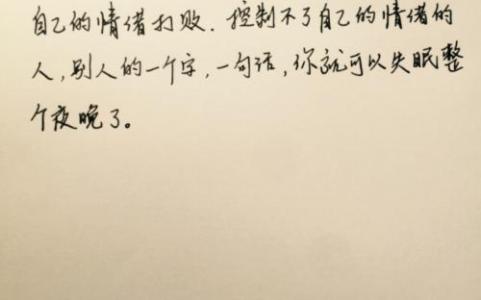 自己的情绪打败.控制不了自己的情绪的
人,别人的一个字,一句话,你就可以失眠整
个夜晚了。